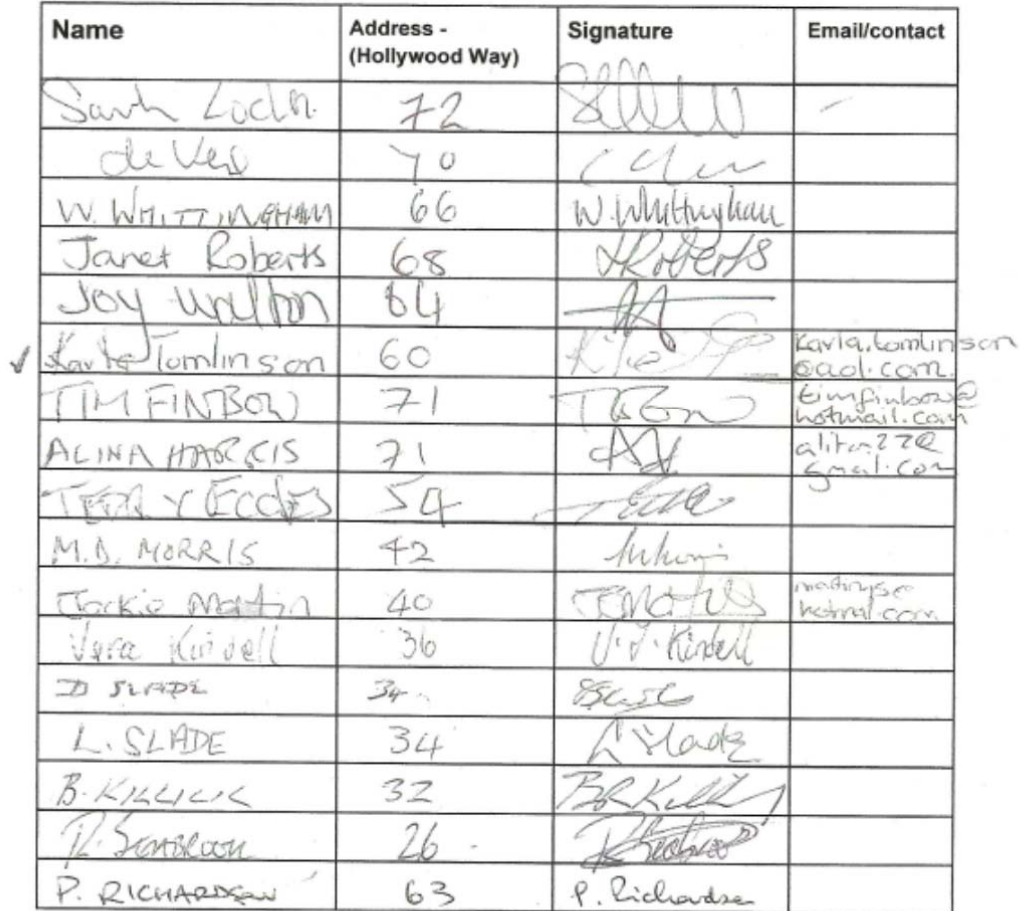 Name Address - (Hollywood Way) Signature Email/contact
Sarah 72 -
de Vere 70
W. WHITTINGHAM 66 W. Whittingham
Janet Roberts 68 J Roberts
Joy Walton 64
✓ Karla Tomlinson 60 Karla.tomlinson
@aol.com.
TIM FINBOW 71 timfinbow@
hotmail.com
ALINA HARRIS 71
gmail.com
TERRY ECCLES 54
M.D. MORRIS 42
Jackie Martin 40
hotmail.com
Vera Kindell 36 V.J. Kindell
D SLADE 34
L. SLADE 34 L Slade
B. KILLICK 32
R. SEABROOK 26
P. RICHARDSON 63 P. Richardson